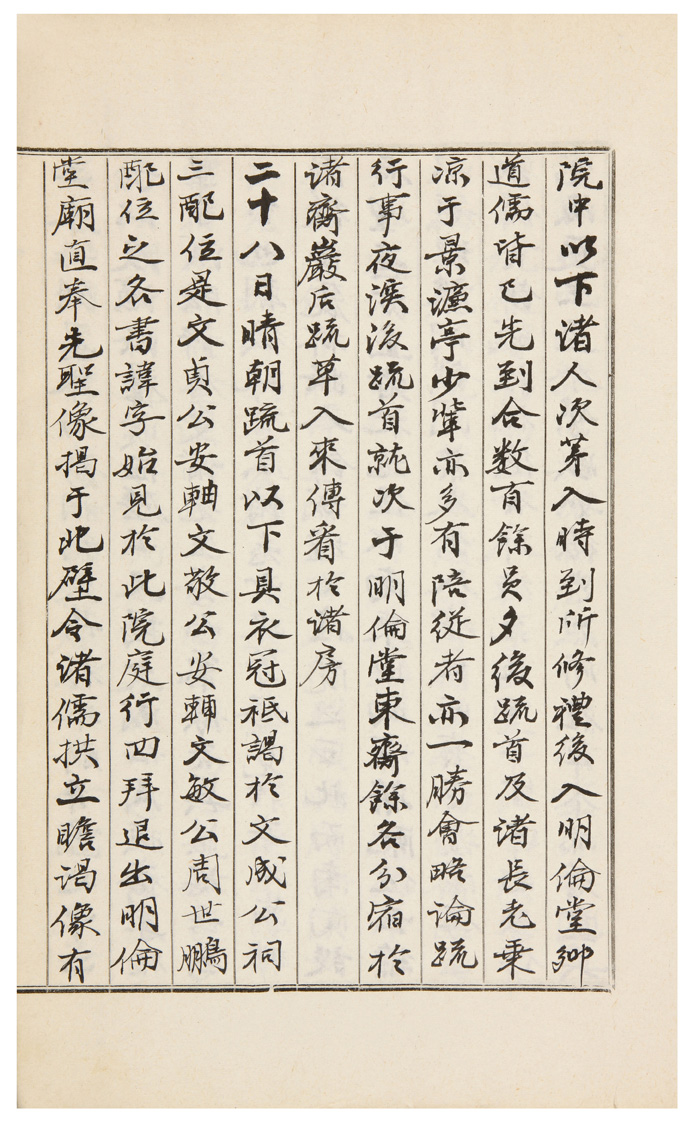 院中以下諸人次茅入時到所修禮後入明倫堂鄉
道儒皆已先到合数百餘員夕後疏首及諸長老乗
凉于景濂亭少輩亦多有陪從者亦一勝會略論疏
行事夜深後疏首就次于明倫堂東齋餘各分宿於
諸齋巖后疏草入來傳看於諸房
二十八日晴朝疏首以下具衣冠祗謁於文成公祠
三配位是文貞公安軸文敬公安輔文敏公周世鵬
配位之各書諱字始見於此院庭行四拜退出明倫
堂廟直奉先聖像揭于北壁令諸儒拱立瞻謁像有